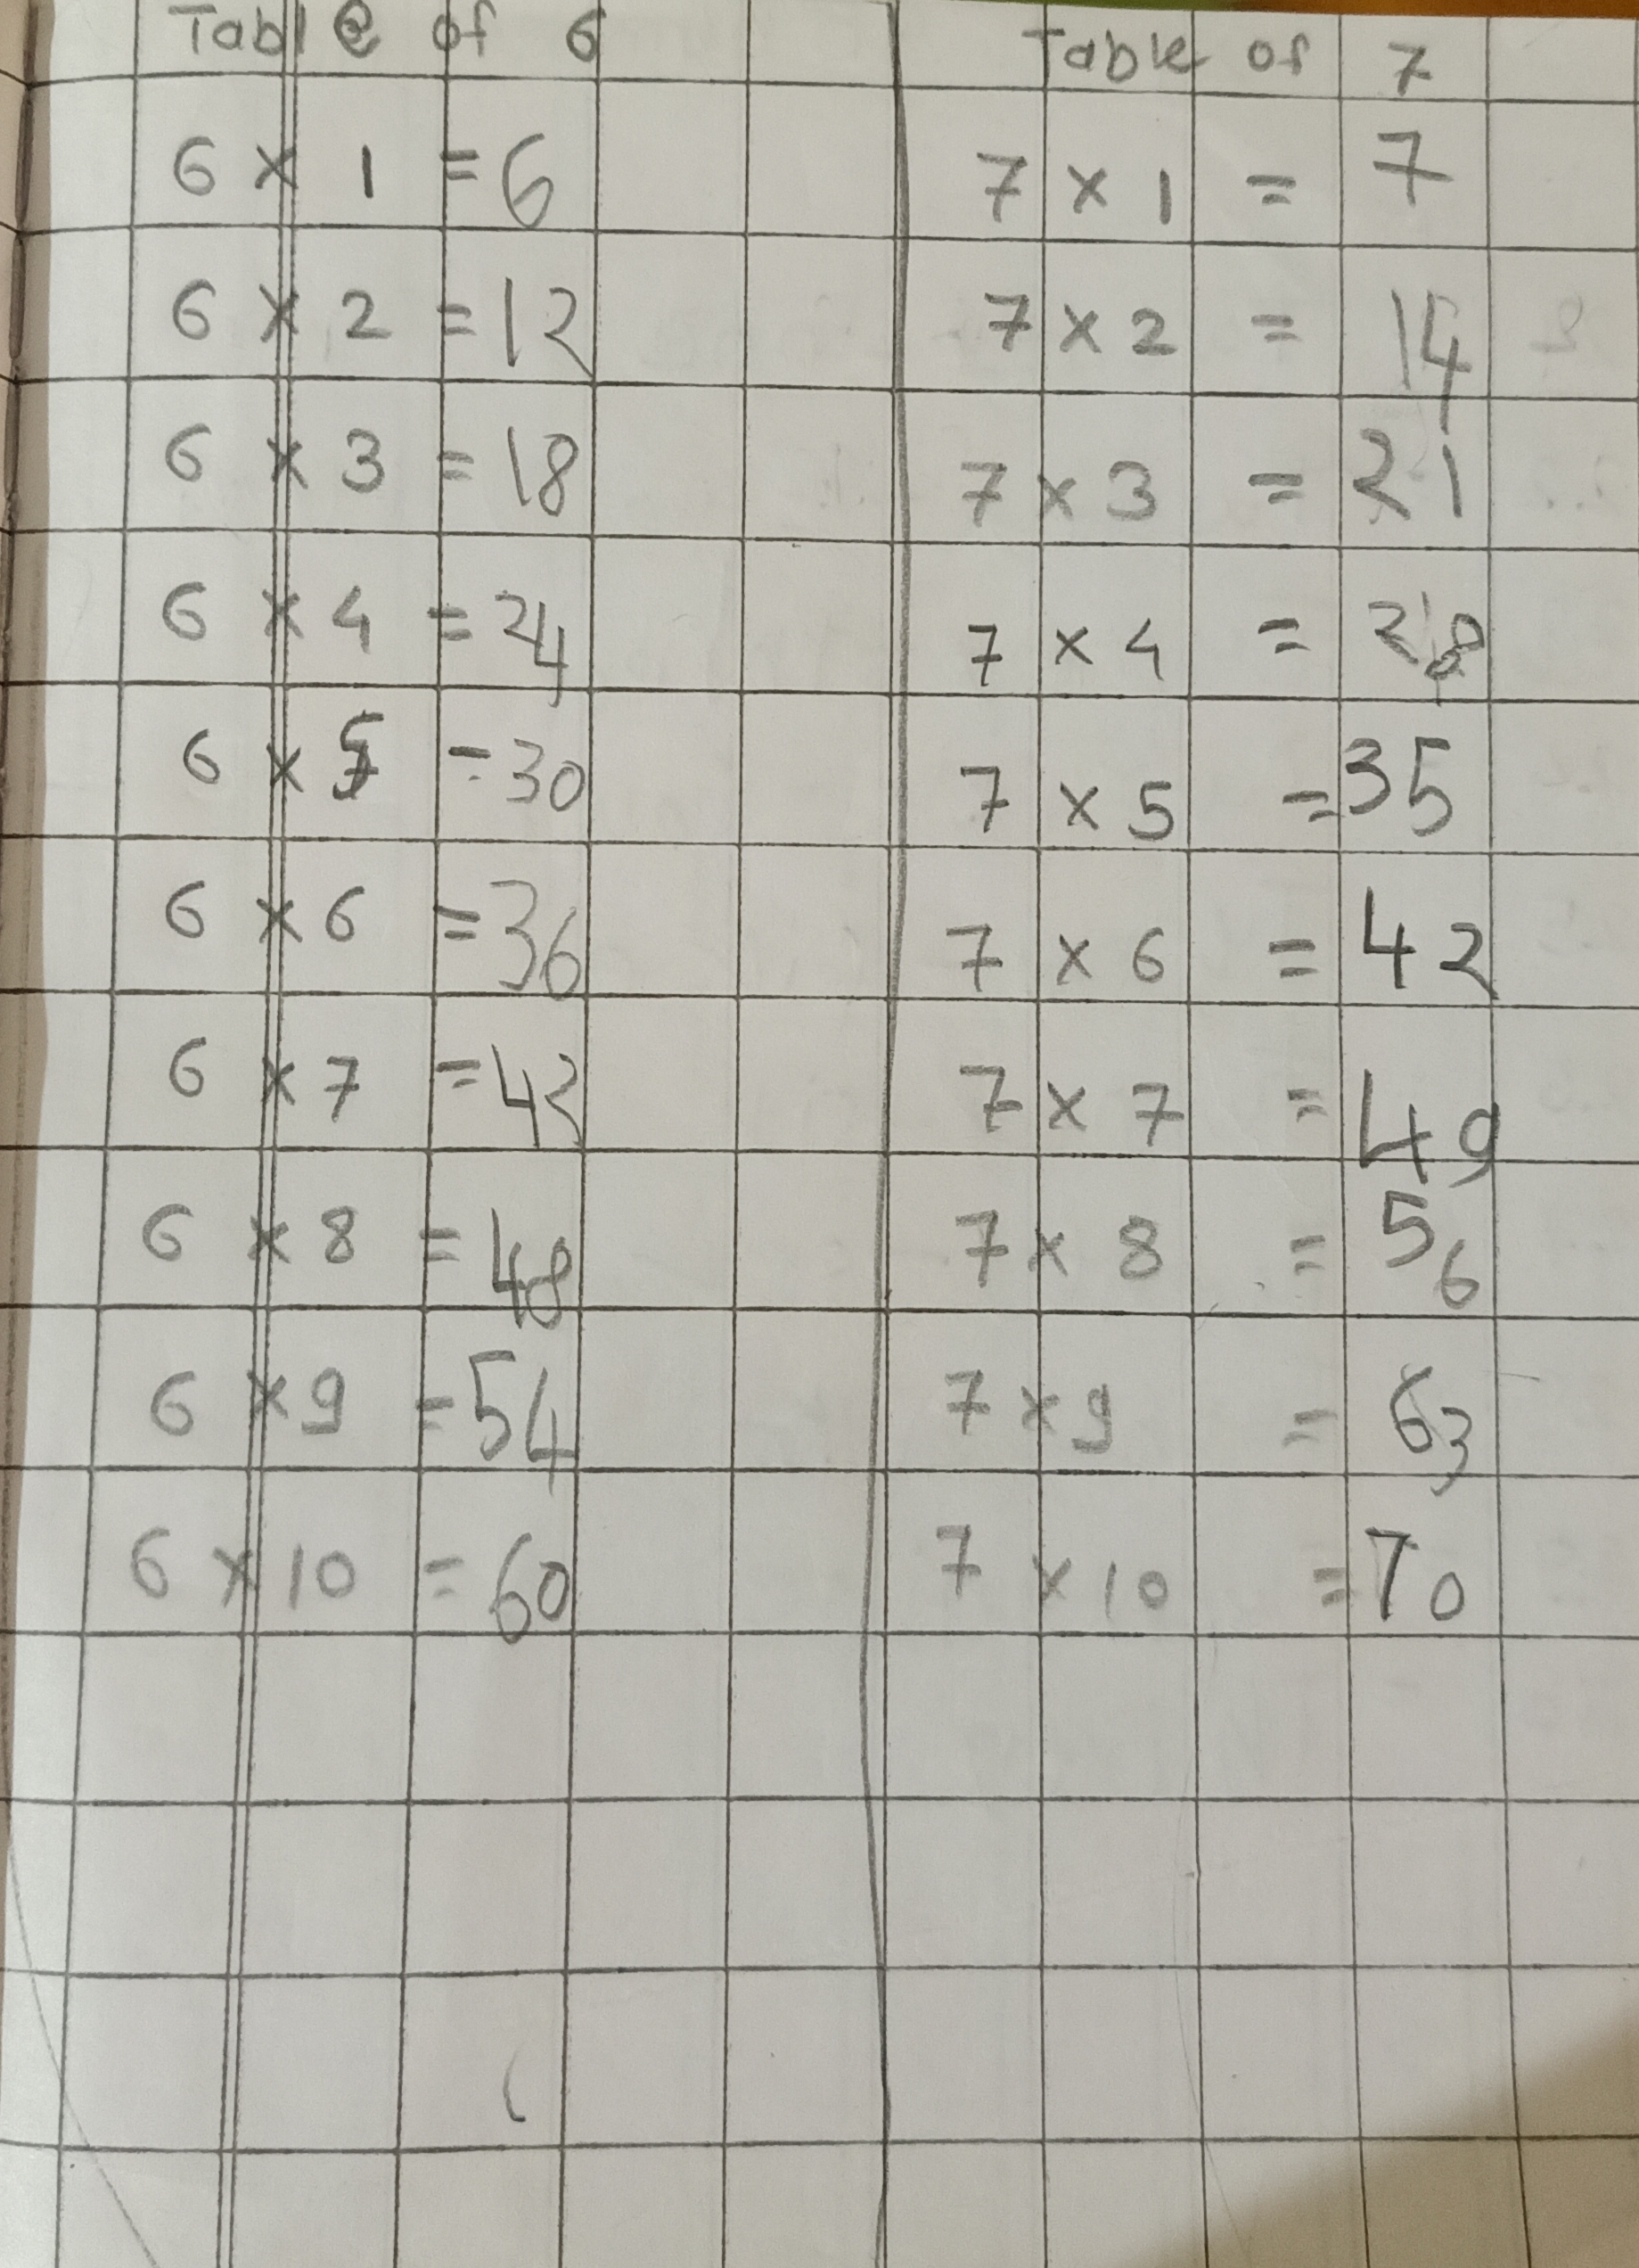 Table of 6
6 × 1 = 6
6 × 2 = 12
6 × 3 = 18
6 × 4 = 24
6 × 5 = 30
6 × 6 = 36
6 × 7 = 42
6 × 8 = 48
6 × 9 = 54
6 × 10 = 60
Table of 7
7 × 1 = 7
7 × 2 = 14
7 × 3 = 21
7 × 4 = 28
7 × 5 = 35
7 × 6 = 42
7 × 7 = 49
7 × 8 = 56
7 × 9 = 63
7 × 10 = 70